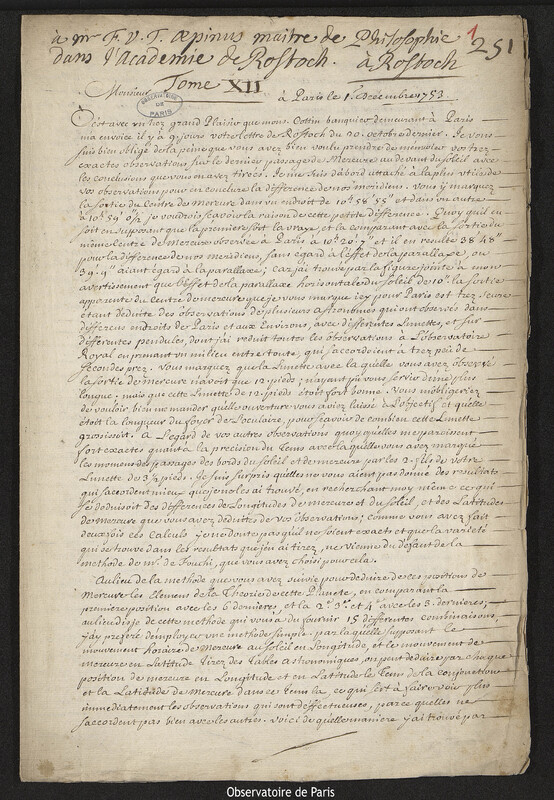 à Mr F. V. T. Æpinus maitre de Philosophie
dans l'Academie de Rostoch. à Rostoch
1
251
Tome XII
OBSERVATOIRE DE PARIS
Monsieur
à Paris le 1er Decembre 1753.
C'est avec un tres grand Plaisir que mons. Cottin banquier demeurant à Paris
m'a envoié il y a 9 jours votre lettre de Rostoch du 20. octobre dernier. Je vous
suis bien obligé de la peine que vous avez bien voulu prendre de m'envoier vos trez
exactes observations sur le dernier passage de Mercure au devant du soleil avec
les conclusions que vous en avez tirées. Je me suis d'abord attaché à la plus utile de
vos observations pour en conclure la difference de nos meridiens. Vous y marquez
la sortie du Centre de Mercure dans un endroit de 10h 58' 55" et dans un autre
à 10h 59' 0"½ je voudrois scavoir la raison de cette petite difference. Quoy qu'il en
soit en supposant que la premiere soit la vraye, et la comparant avec la sortie du
même Centre de Mercure observée à Paris à 10h 20' 7" il en resulte 38' 48"
pour la difference de nos meridiens, sans egard à l'effet de la parallaxe, ou
39' 9" aiant égard à la parallaxe; car j'ai trouvé par la figure jointe à mon
avertissement que l'effet de la parallaxe horisontale du soleil de 10". la sortie
apparente du Centre de mercure que je vous marque icy pour Paris est trez seure
etant deduite des observations de plusieurs astronomes qui ont observés dans
differens endroits de Paris et aux Environs, avec differentes Lunettes, et sur
differentes pendules, dont j'ai reduit toutes les observations à l'observatoire
Royal en prenant un milieu entre toute, qui s'accordoient à trez peu de
secondes prez. Vous marquez que la Lunette avec la quelle vous avez observé
la sortie de mercure n'avoit que 12. pieds; n'ayant pû vous servir d'une plus
longue; mais que cette Lunette de 12. pieds étoit fort bonne. Vous m'obligeriez
de vouloir bien me mander quelle ouverture vous aviez laissé à l'objectif et quelle
étoit la longueur du foyer de l'oculaire, pour scavoir de combien cette Lunette
grossissoit. A l'egard de vos autres observations quoy quelles me paroissent
fort exactes quant à la precision du Tems avec la quelle vous avez marqué
les momens des passages des bords du soleil et de mercure par les 2. fils de votre
Lunette de 3½ pieds. Je suis surpris quelles ne vous aient pas donné des resultats
qui s'accordent mieux que je ne les ai trouvé, en recherchant moy même ce qui
se deduisoit des differences de Longitudes de mercure et du soleil, et des Latitudes
de Mercure que vous avez deduittes de vos observations; comme vous avez fait
deux fois ces Calculs je ne doute pas qu'il ne soient exacts et que la varieté
qui se trouve dans les resultats que j'en ai tirez, ne vienne du defaut de la
methode de mr. de Fouchi, que vous avez choisi pour cela.
Au lieu de la methode que vous avez suivie pour deduire de ces positions de
Mercure les Elemens de la Theorie de cette Planete, en comparant la
premiere position avec les 6 dernieres, et la 2e 3e et 4e avec les 3. dernieres;
au lieu dis je de cette methode qui vous a du fournir 15 differentes combinaisons,
j'ay preferé d'employer une methode simple. par la quelle supposant le
mouvement horaire de Mercure au soleil en Longitude, et le mouvement de
mercure en Latitude tirez des Tables astronomiques, on peut deduire par chaque
position de mercure en Longitude et en Latitude le Tems de la conjonction
et la Latitude de Mercure dans ce Tems la, ce qui sert à faire voir plus
immediatement les observations qui sont deffectueuses, parce quelles ne
s'accordent pas bien avec les autres. Voici de quelle maniere j'ai trouvé par
Observatoire de Paris